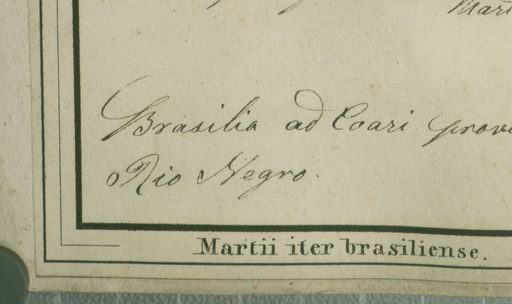 Mart
Brasilia ad Coari prov
Rio Negro.
Martii iter brasiliense.